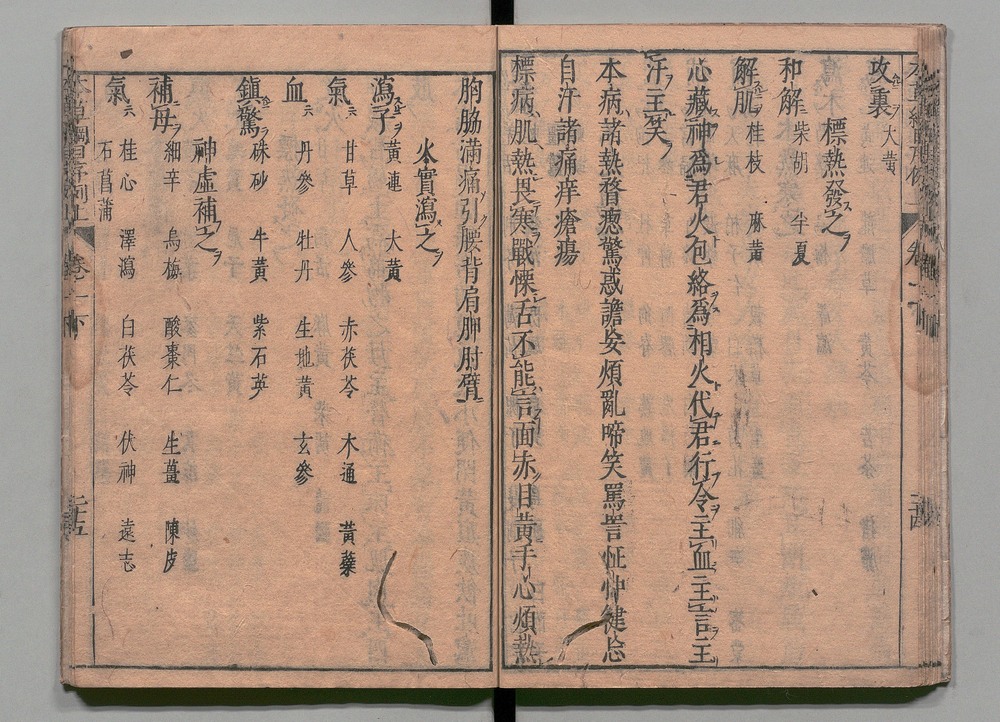 攻裏 大黄
標熱發之
和解 柴胡 半夏
解肌 桂枝 麻黄
心藏神爲君火包絡爲相火代君行令主血主言主
汗主笑
本病諸熱瞀瘛驚惑譫妄煩亂啼笑罵詈怔忡健忘
自汗諸痛痒瘡瘍
標病肌熱畏寒戰慄舌不能言面赤目黄手心煩熱
胸脇滿痛引腰背肩胛肘臂
火實瀉之
瀉子 黄連 大黄
氣 甘草 人參 赤茯苓 木通 黄蘗
血 丹參 牡丹 生地黄 玄參
鎮驚 硃砂 牛黄 紫石英
神虛補之
補母 細辛 烏梅 酸棗仁 生薑 陳皮
氣 桂心 澤瀉 白茯苓 伏神 遠志
石菖蒲
卷一下
二十五